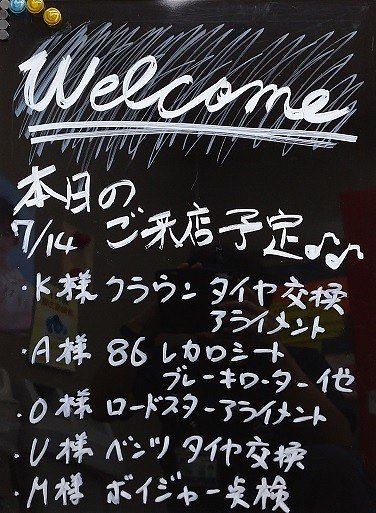 Welcome
本日の
7/14 ご来店予定♪♪
・K様 クラウン タイヤ交換
アライメント
・A様 86 レカロシート
ブレーキローター他
・O様 ロードスターアライメント
・U様 ベンツ タイヤ交換
・M様 ボイジャー点検